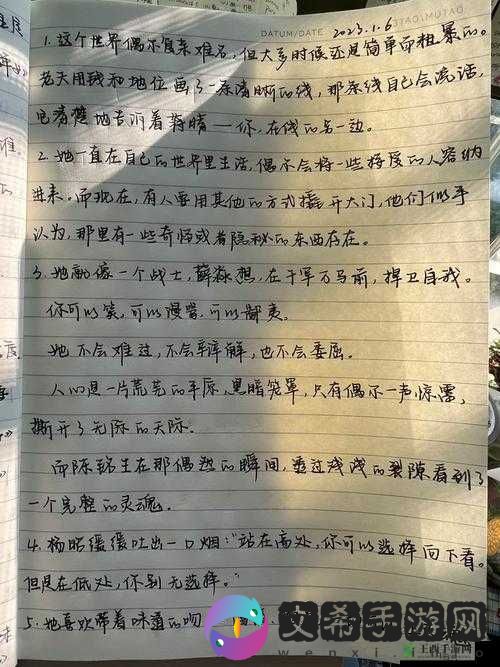 DATUM/DATE 2023.1.6
1. 这个世界偶尔复杂难名，但大多时候还是简单而粗暴的。
老天用钱和地位画了一条清晰的线，那条线自己会说话，
也清楚地告诉着 — 你，在线的另一边。
2. 她一直在自己的世界里生活，偶尔会将一些的人容纳
进来。而现在，有人要用其他的方式撬开大门，他们似乎
认为，那里有一些奇怪或者隐秘的东西存在。
3. 她就像一个战士，在千军万马前，捍卫自我。
你可以笑，可以谩骂，可以鄙夷。
她不会难过，不会辩解，也不会委屈。
人心是一片荒芜的平原，黑暗笼罩，只有偶尔一声惊雷，
撕开了无际的天际。
而陈铭生在那偶然的瞬间，透过浅浅的裂隙看到了
一个完整的灵魂。
4. 杨昭缓缓吐出一口烟：“站在高处，你可以选择向下看。
但是在低处，你别无选择。”
5. 她喜欢带着味道的吻
文希手游网
wenxi